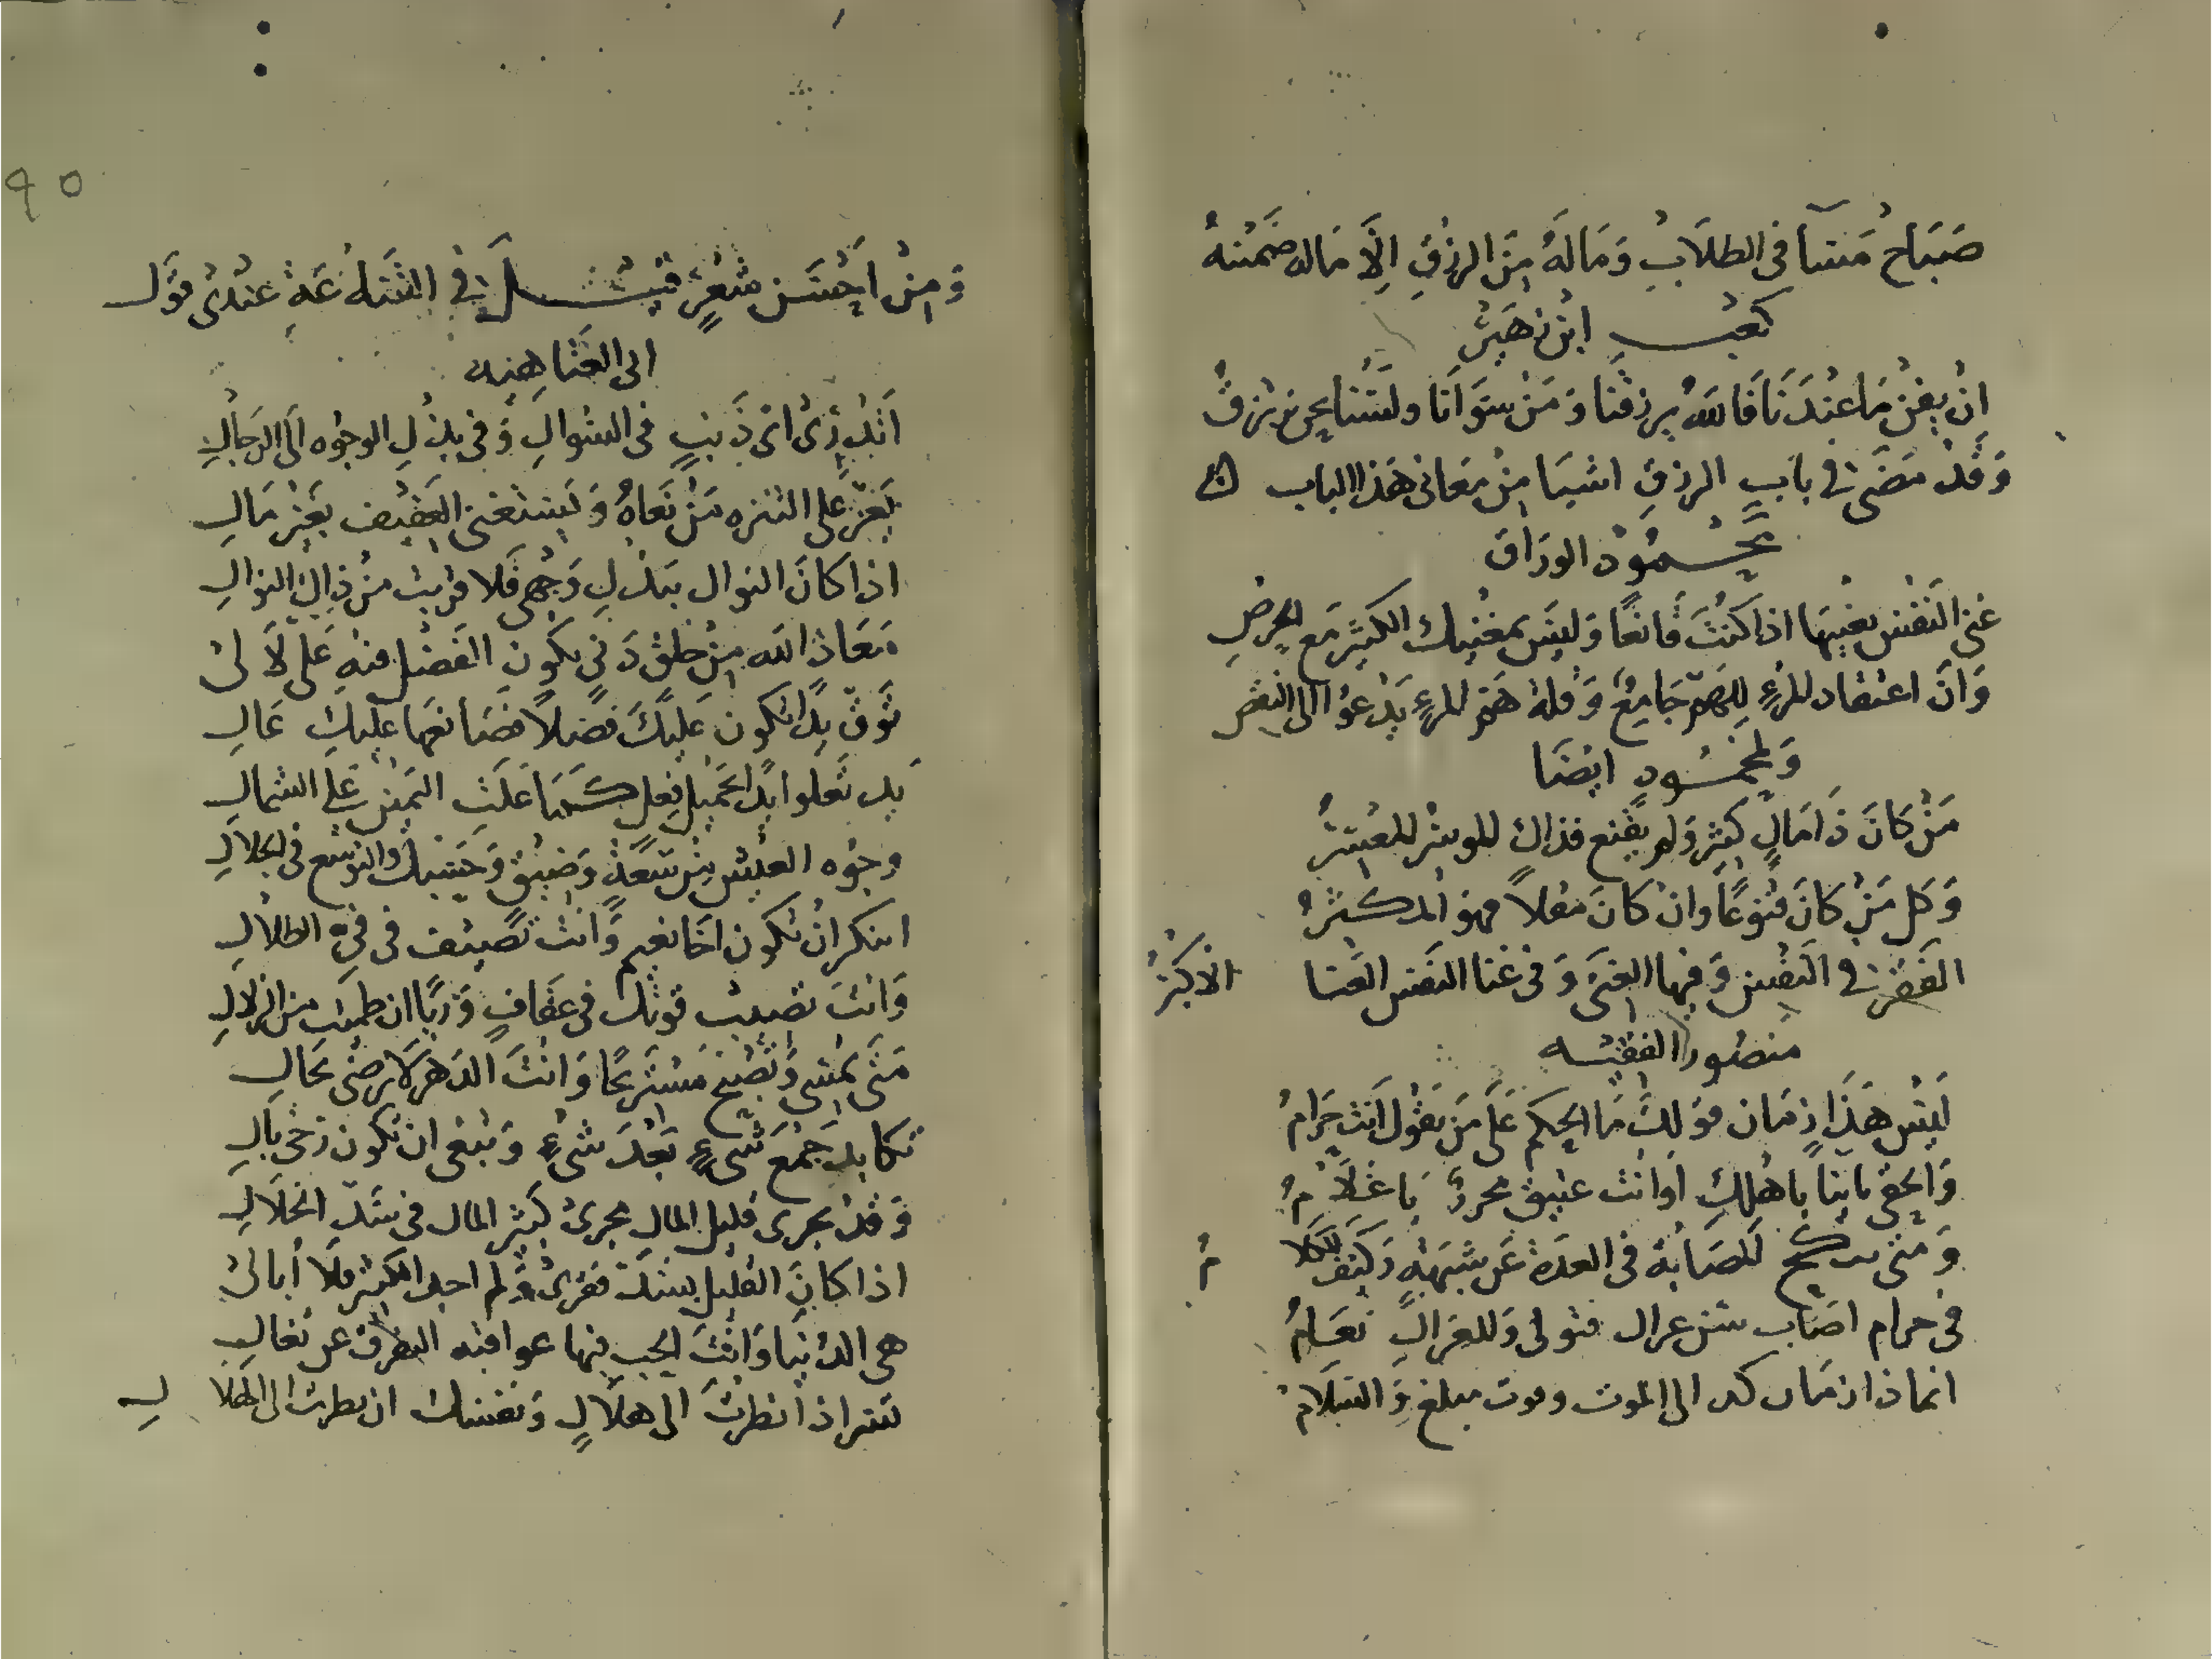 صَبَاحُ مَسَآ في الطلَابِ وَمَالَهُ مِنَ الرزْقِ اِلَّا مَاله ضَمَنتهُ
كعْب ابْن زهَيْر
اِنْ يفْن مَا عنْدَنَا فَاللهُ يرزقْنَا وَمَنْ سوَانَا ولسْنَا نحن نرزقُ
وَقدْ مَضَى في بابِ الرزقِ اشيَا مِنْ مَعَاني هَذا الباب
محْمُوْد الورَاق
غنى النَفْس يغْنيهَا اذا كنْتَ قَانعًا وَليسَ بمغْنيك الكثيْر مَع الحرْصِ
وَانَّ اعتقاد المرْءِ لِلهَمّ جَامِعٌ وَقلة هَمّ المرْءِ يَدْعوُا الى النقْص
وَلمحْمُودٍ ايضَا
مَنْ كَانَ ذَا مَالٍ كثِيْرٍ وَلم يقْنع فذاك الموسْر المعْسرُ
وَكل مَنْ كانَ قنوْعًا وَانْ كانَ مقلاً فهوَ المكثرُ
الفَقر في النَفْس وَفيهَا الغنَى وَفي غنا النَفس الغنَا الاكبَرُ
منصوُر الفقيْه
ليْسَ هَذَا زمَان قوْلكَ مَا الحكم عَلَى مَنْ يقوُل اَنْت حَرَامُ
وَالحقي بايناً باهْلكِ اَوْ انْت عتيق محررٌ يَا غلَامُ
وَمتى تنكح المصَابَة في العدَة عَن شبْهةٍ وَكيْفَ الكلامُ
في حرام اصَاب سن غزال فتولى وَللغزالِ بغَامُ
انما ذا زمَان كد الى الموت وقوت مبلغ وَالسَلَامْ
٩٥
وَمِنْ اَحْسَن شعْرٍ قيْل في القَنَاعَةِ عنْدى قوْل
ابى العَتَاهيَه
اَتدْرِى اىّ ذَنبٍ في السُوالِ وَفي بذْلِ الوجوُه الَى الرجَالِ
يَعز عَلى التنزه مَنْ بَغاهُ وَيَسْتغنى العَفيْف بغَيْر مَالِ
اذا كانَ النوال ببَذْلِ وَجْهى فلا قربْت منْ ذَاكَ النوالِ
مَعَاذ الله مِنْ خلقٍ دَنىٍ يكوُن الفَضْل فيْه عَلىّ لَا لىْ
توَقّ يدًا تكوُن عَليْكَ فضْلاً فصَانعُهَا عَليْكِ عَالِ
يَد تَعلوا يدًا بجَميلِ فعلٍ كَمَا عَلَتِ اليَميْن عَلَى الشمالِ
وجوُه العيْش مِنْ سَعَةٍ وَضيْقٍ وَحَسْبك وَالتوَسّع في الحلالِ
اتنكر انْ تكوُن اخَا نعِيْم وَانْت تصَيف في فيْء الظلالِ
وَانْتَ تصيب قوْتك في عَفَافٍ وَريًّا ان ظمِئت من الزلالِ
مَتَى تمْسى وَتصْبح مسْترِيحًا وَانْتَ الدَهر لَا تَرضى بحَالِ
تكابد جَمْعَ شىْءٍ بَعْدَ شىْءٍ وَتبْغى انْ تكوُن رَخىّ بالِ
وَقدْ يجرى قليل المالِ مجرىْ كثيْر المال في سَدّ الخلالِ
اذا كانَ القليل يسُدّ فقرىْ وَلم اجد الكثير فلَا اُبالىْ
هى الدنيَا وَانْتَ الحب فيها عواقبه التفرقْ عن تغالِ
تسر اذا نظرْتَ الى هلَالٍ وَنقصك ان نظرت الى الهلالِ